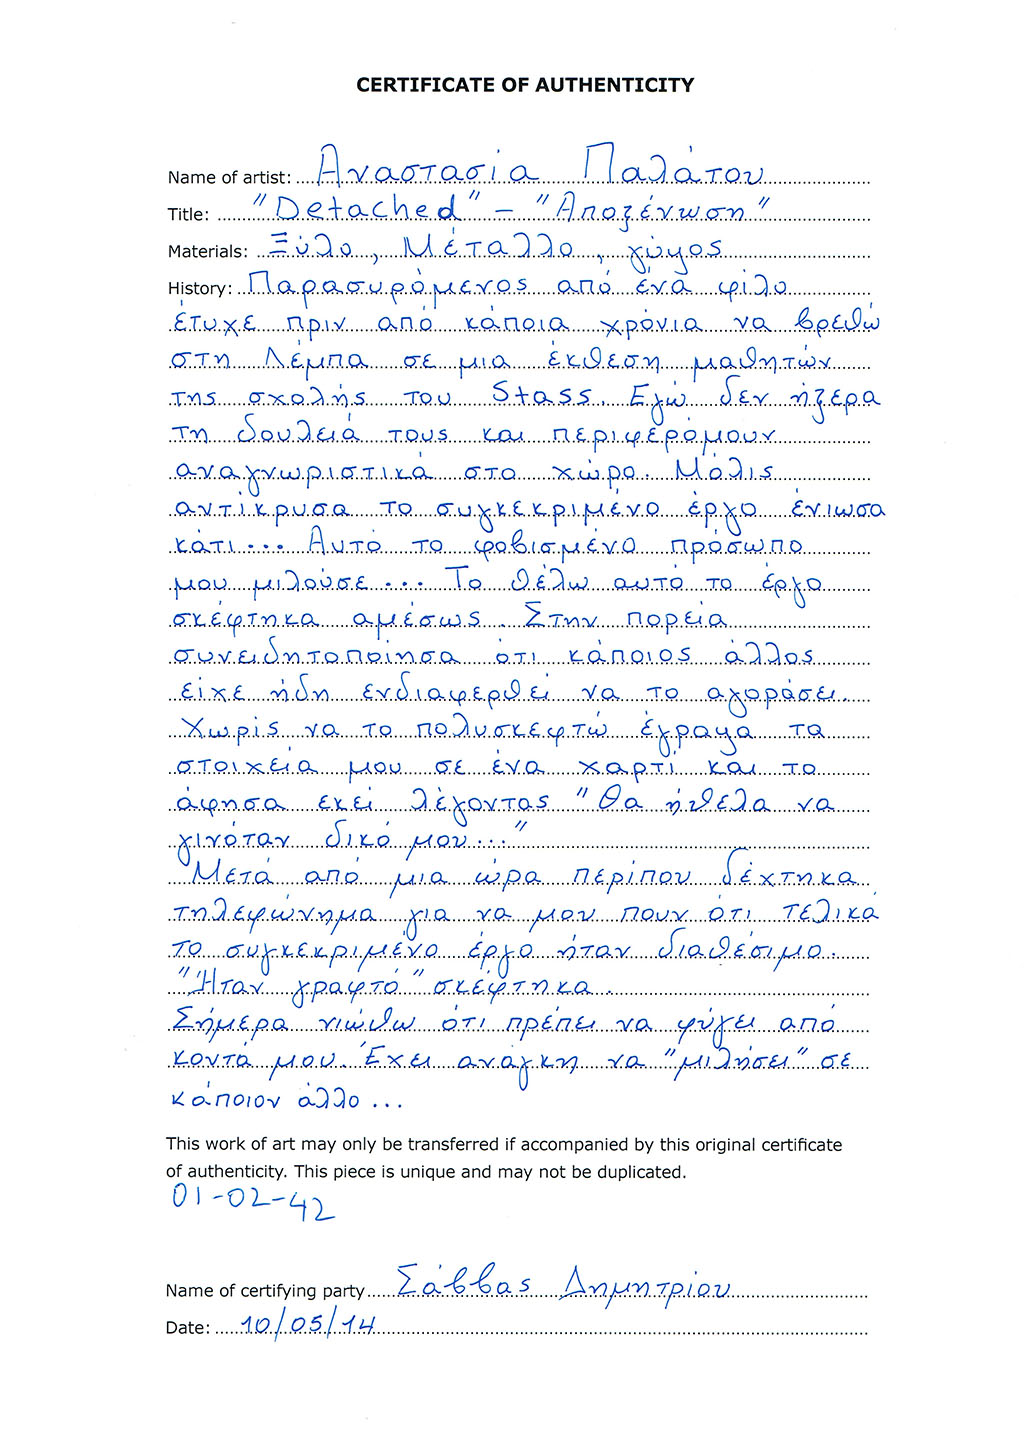 CERTIFICATE OF AUTHENTICITY
Name of artist: Αναστασία Παλάτου
Title: "Detached" – "Αποξένωση"
Materials: Ξύλο, Μέταλλο, γύψος
History: Παρασυρόμενος από ένα φίλο
έτυχε πριν από κάποια χρόνια να βρεθώ
στη Λέμπα σε μια έκθεση μαθητών
της σχολής του Stass. Εγώ δεν ήξερα
τη δουλειά τους και περιφερόμουν
αναγνωριστικά στο χώρο. Μόλις
αντίκρυσα το συγκεκριμένο έργο ένιωσα
κάτι... Αυτό το φοβισμένο πρόσωπο
μου μιλούσε... Το θέλω αυτό το έργο
σκέφτηκα αμέσως. Στην πορεία
συνειδητοποίησα ότι κάποιος άλλος
είχε ήδη ενδιαφερθεί να το αγοράσει.
Χωρίς να το πολυσκεφτώ έγραψα τα
στοιχεία μου σε ένα χαρτί και το
άφησα εκεί λέγοντας "Θα ήθελα να
γινόταν δικό μου..."
Μετά από μια ώρα περίπου δέχτηκα
τηλεφώνημα για να μου πουν ότι τελικά
το συγκεκριμένο έργο ήταν διαθέσιμο.
"Ήταν γραφτό" σκέφτηκα.
Σήμερα νιώθω ότι πρέπει να φύγει από
κοντά μου. Έχει ανάγκη να "μιλήσει" σε
κάποιον άλλο...
This work of art may only be transferred if accompanied by this original certificate
of authenticity. This piece is unique and may not be duplicated.
01-02-42
Name of certifying party Σάββας Δημητρίου
Date: 10/05/14